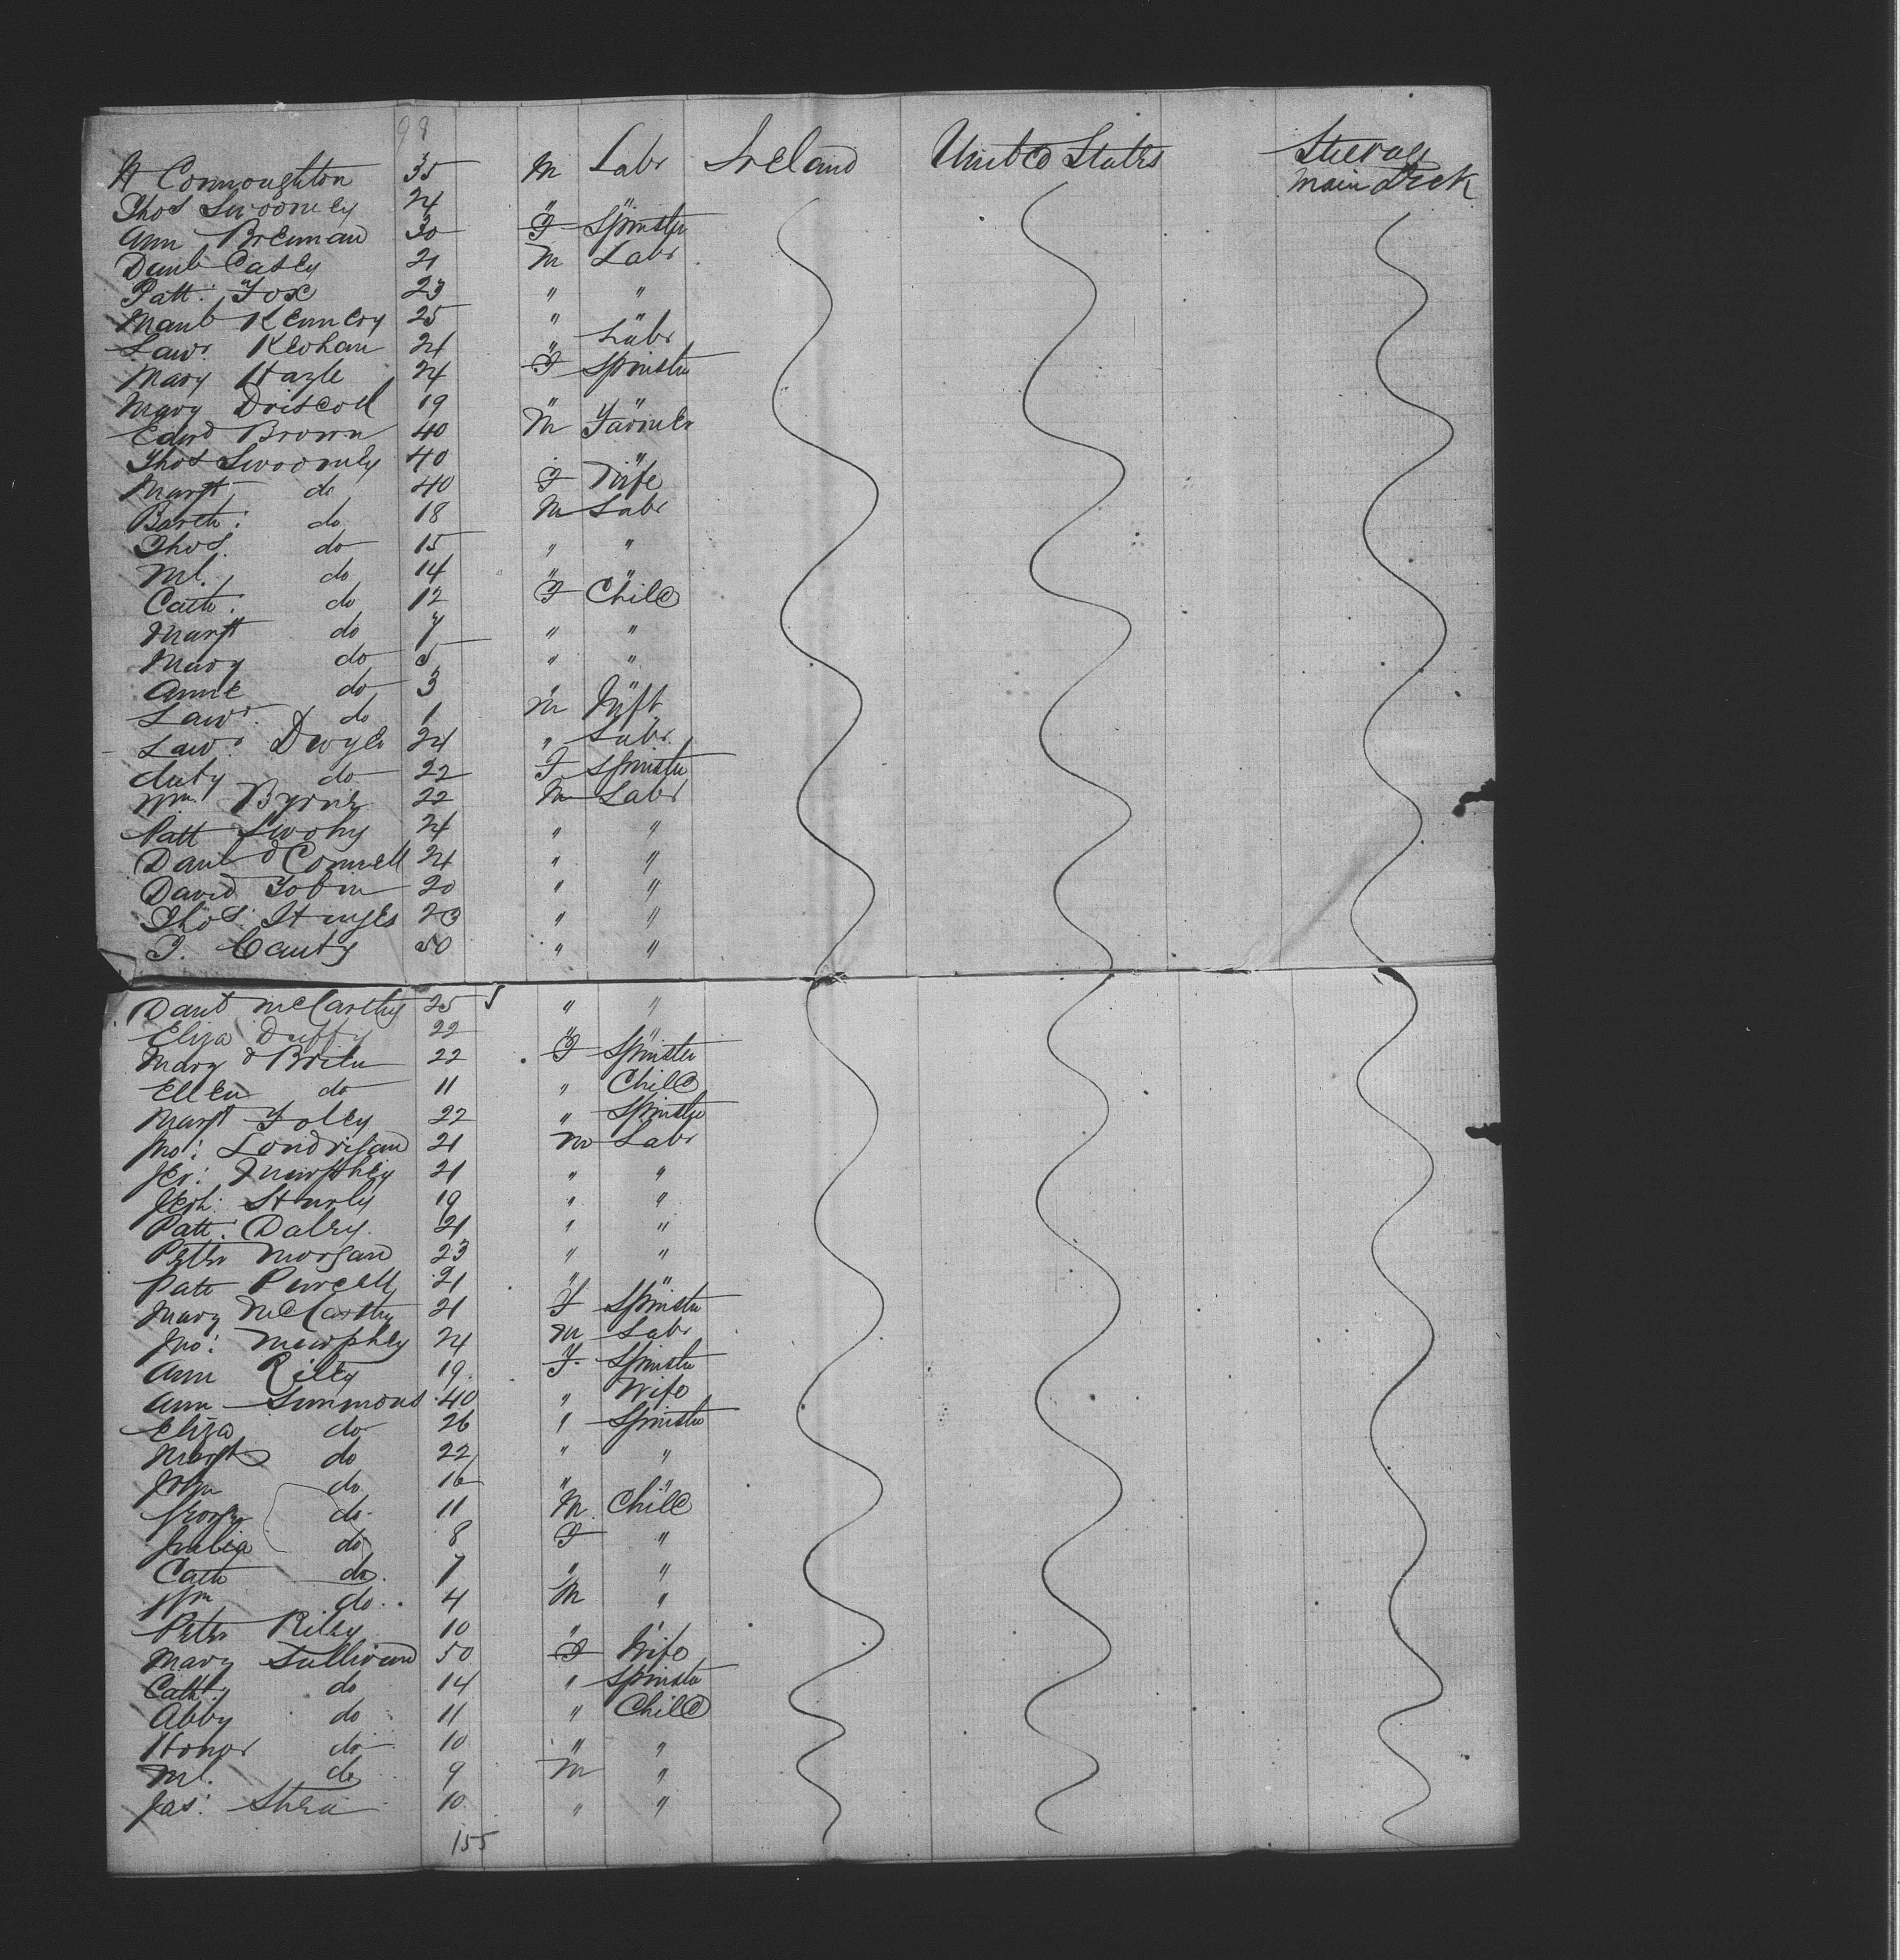 98
H Connoughton 35 M Labr Ireland United States Steerage
Main Deck
Thos Swoomey 24 " "
Ann Brennan 30 F Spinster
Danl Casey 21 M Labr
Patt: Fox 23 " "
Danl Kennedy 25 " "
Lawr. Keohan 24 " Labr
Mary Hayle 24 F Spinster
Mary Driscoll 19 " "
Edwd Brown 40 M Farmer
Thos Swoomey 40 " "
Margt do 40 F Wife
Barth: do 18 M Labr
Thos. do 15 " "
Ml. do 14 " "
Cath: do 12 F Child
Margt do 7 " "
Mary do 5 " "
Anne do 3 " "
Lawr. do 1 M Inft
Lawr. Dwyer 24 " Labr
Judy do 22 F Spinster
Wm Byrne 22 M Labr
Patt Twohy 24 " "
Danl O'Connell 24 " "
David Tobin 20 " "
Thos. Hayes 23 " "
T. Canty 50 " "
Danl McCarthy 25 " "
Eliza Duffy 22 " "
Mary O Brien 22 F Spinster
Ellen do 11 " Child
Margt Foley 22 " Spinster
Jno: Londrigan 21 M Labr
Jer: Murphey 21 " "
Jerh: Hurly 19 " "
Patt: Daley 21 " "
Peter Morgan 23 " "
Patt Purcell 21 " "
Mary McCarthy 21 F Spinster
Jno: Murphey 24 M Labr
Ann Riley 19 F Spinster
Ann Simmons 40 " Wife
Eliza do 26 " Spinster
Margt do 22 " "
do 16 " "
George do 11 M Child
Julia do 8 F "
Cath do 7 " "
Wm do 4 M "
Peter Riley 10 " "
Mary Sullivan 50 F Wife
Cath: do 14 " Spinster
Abby do 11 " Child
Honor do 10 " "
Ml. do 9 M "
Jas: Shea 10 " "
155